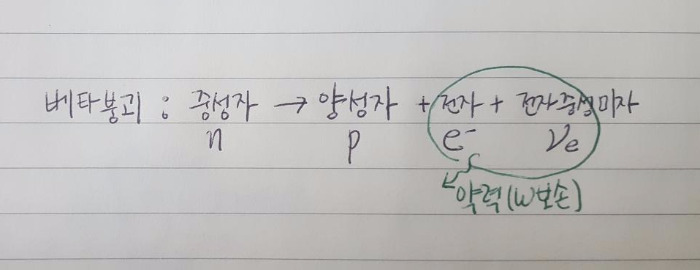 베타붕괴 : 중성자 → 양성자 + 전자 + 전자중성미자
n p e⁻ νe
약력(W보손)